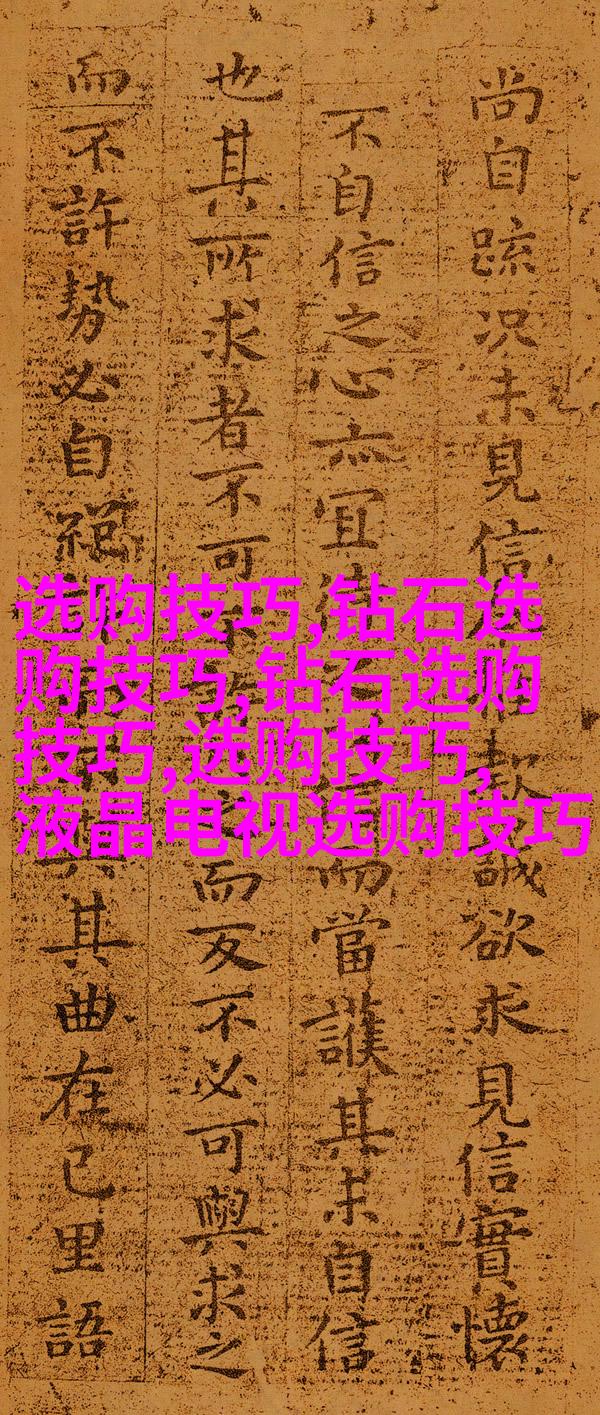 尚自疏况未見信款誠欲求見信實懷
不自信之心亦宜而當護其未自信
也其所求者不可而反不必可與求之
而不許勢必自絕其曲在己里語
选购技巧,钻石选
购技巧,钻石选购
技巧,选购技巧,
液晶电视选购技巧